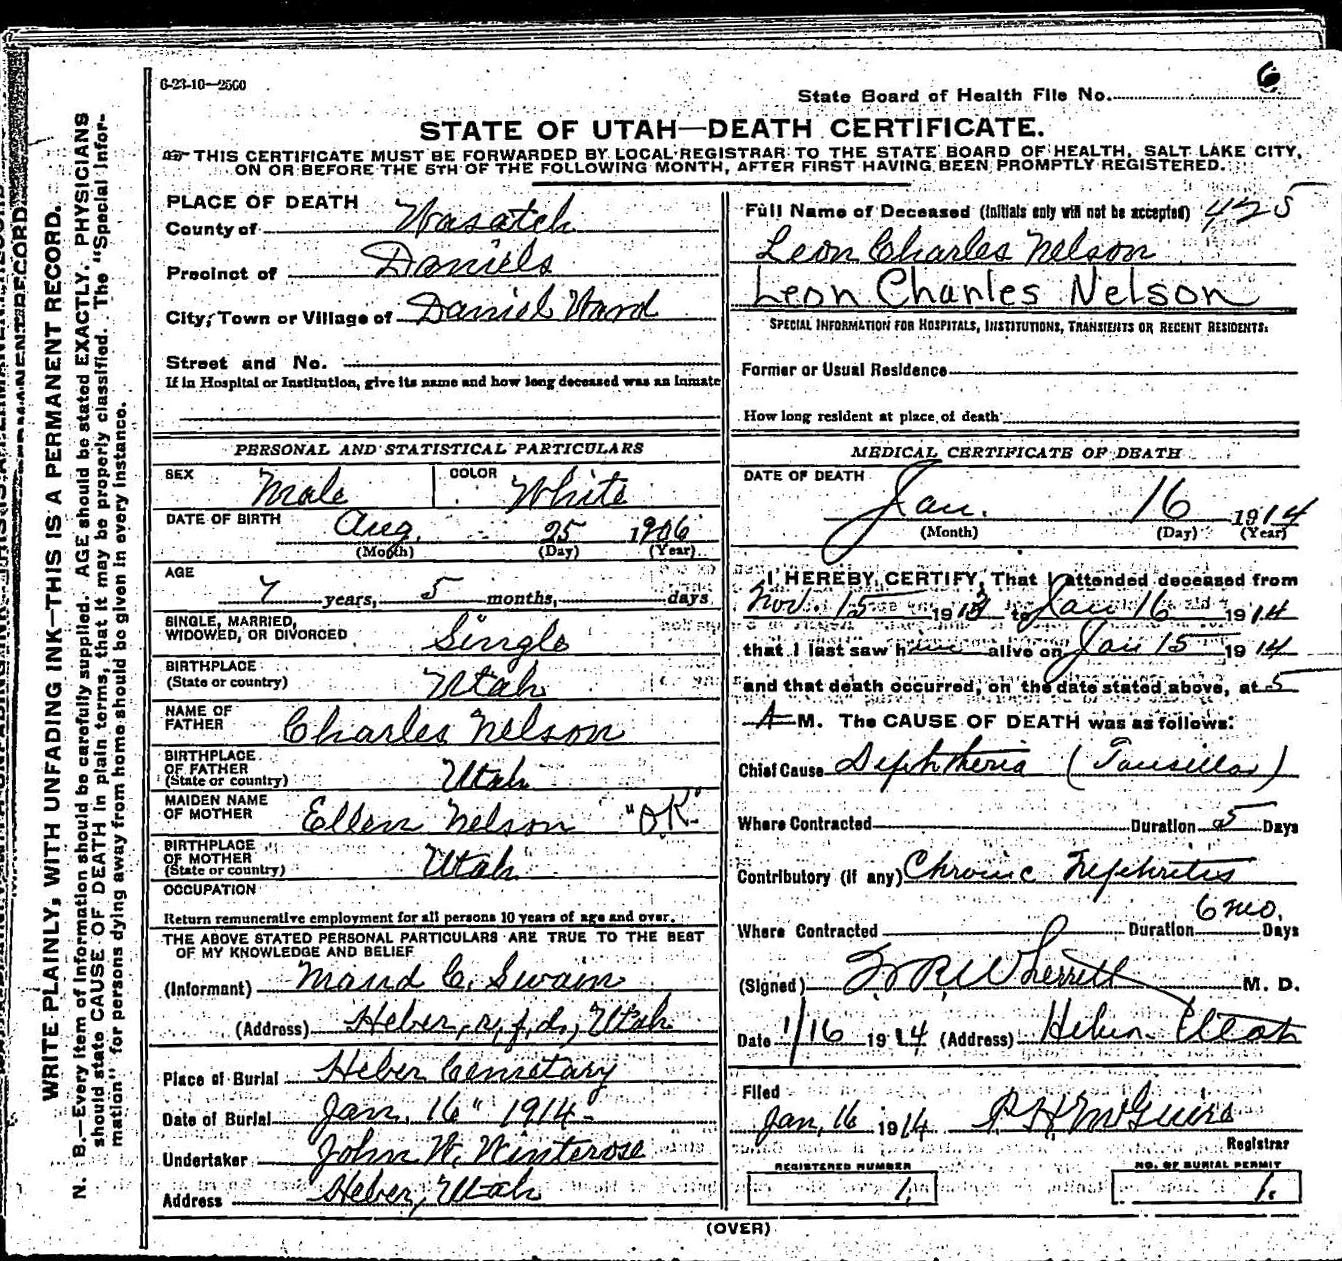 6-23-10—2500
6
State Board of Health File No.
STATE OF UTAH—DEATH CERTIFICATE.
THIS CERTIFICATE MUST BE FORWARDED BY LOCAL REGISTRAR TO THE STATE BOARD OF HEALTH, SALT LAKE CITY,
ON OR BEFORE THE 5TH OF THE FOLLOWING MONTH, AFTER FIRST HAVING BEEN PROMPTLY REGISTERED.
WRITE PLAINLY, WITH UNFADING INK—THIS IS A PERMANENT RECORD.
N. B.—Every item of information should be carefully supplied. AGE should be stated EXACTLY. PHYSICIANS
should state CAUSE OF DEATH in plain terms, that it may be properly classified. The "Special Infor-
mation" for persons dying away from home should be given in every instance.
PLACE OF DEATH
County of Wasatch
Precinct of Daniels
City, Town or Village of Daniel Ward
Street and No.
If in Hospital or Institution, give its name and how long deceased was an Inmate
PERSONAL AND STATISTICAL PARTICULARS
SEX Male COLOR White
DATE OF BIRTH Aug. 25 1906
(Month) (Day) (Year)
AGE
7 years, 5 months, days
SINGLE, MARRIED,
WIDOWED, OR DIVORCED Single
BIRTHPLACE
(State or country) Utah
NAME OF
FATHER Charles Nelson
BIRTHPLACE
OF FATHER
(State or country) Utah
MAIDEN NAME
OF MOTHER Ellen Nelson "O.K."
BIRTHPLACE
OF MOTHER
(State or country) Utah
OCCUPATION
Return remunerative employment for all persons 10 years of age and over.
THE ABOVE STATED PERSONAL PARTICULARS ARE TRUE TO THE BEST
OF MY KNOWLEDGE AND BELIEF
(Informant) Maud C. Swain
(Address) Heber, r.f.d., Utah
Place of Burial Heber Cemetary
Date of Burial Jan. 16" 1914
Undertaker John W. Winterose
Address Heber, Utah
Full Name of Deceased (Initials only will not be accepted) 425
Leon Charles Nelson
Leon Charles Nelson
SPECIAL INFORMATION FOR HOSPITALS, INSTITUTIONS, TRANSIENTS OR RECENT RESIDENTS:
Former or Usual Residence
How long resident at place of death
MEDICAL CERTIFICATE OF DEATH
DATE OF DEATH
Jan. 16 1914
(Month) (Day) (Year)
I HEREBY CERTIFY, That I attended deceased from
Nov. 15 1913 to Jan 16 1914
that I last saw him alive on Jan 15 1914
and that death occurred, on the date stated above, at 5
A M. The CAUSE OF DEATH was as follows:
Chief Cause Diphtheria (Tonsillar)
Where Contracted Duration 5 Days
Contributory (if any) Chronic Nephritis
6 mo.
Where Contracted Duration Days
(Signed) Wherritt M. D.
Date 1/16 1914 (Address) Heber Utah
Filed
Jan. 16 1914 McGuire
Registrar
REGISTERED NUMBER
1.
NO. OF BURIAL PERMIT
1.
(OVER)